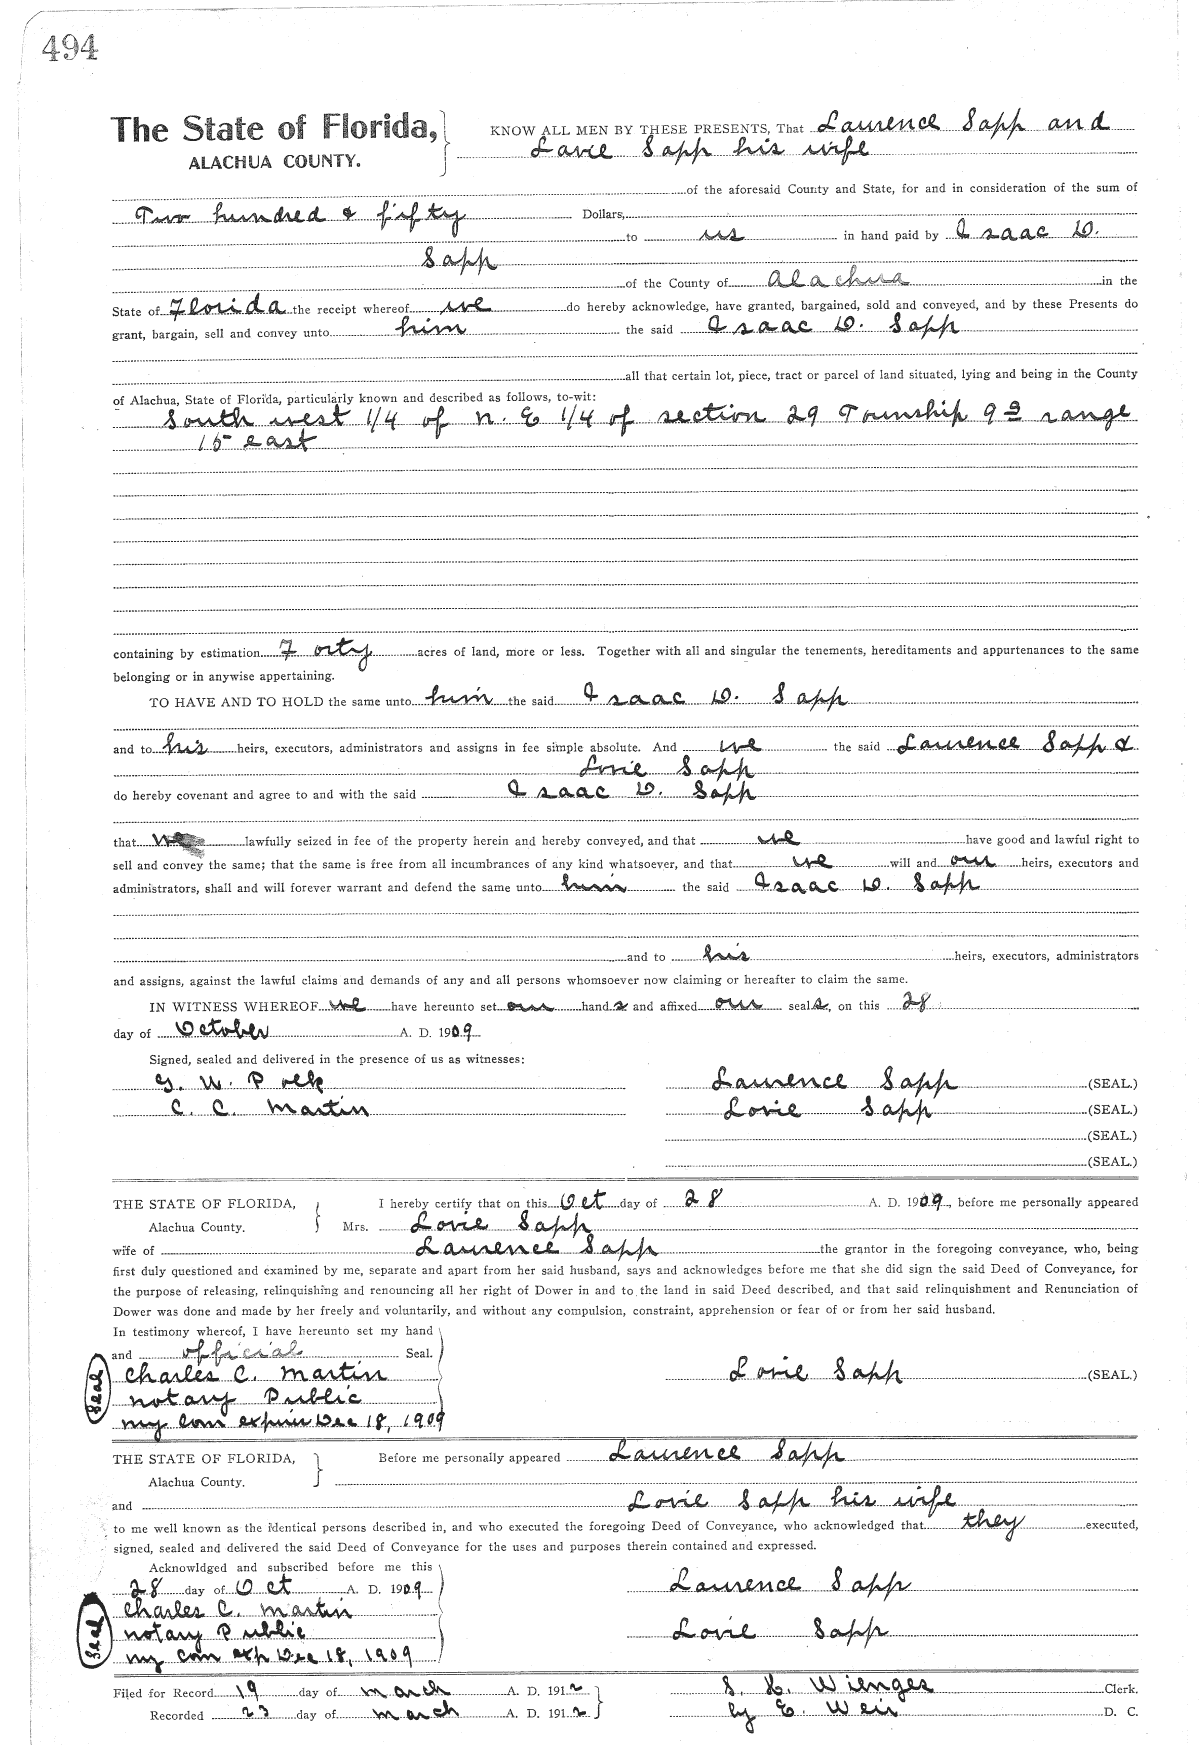 494
The State of Florida, KNOW ALL MEN BY THESE PRESENTS, That Laurence Sapp and
ALACHUA COUNTY. Lovie Sapp his wife
of the aforesaid County and State, for and in consideration of the sum of
Two hundred & fifty Dollars,
to us in hand paid by Isaac D.
Sapp
of the County of Alachua in the
State of Florida the receipt whereof we do hereby acknowledge, have granted, bargained, sold and conveyed, and by these Presents do
grant, bargain, sell and convey unto him the said Isaac D. Sapp
all that certain lot, piece, tract or parcel of land situated, lying and being in the County
of Alachua, State of Florida, particularly known and described as follows, to-wit:
South west 1/4 of n. E 1/4 of section 29 Township 9 S range
15 east
containing by estimation Forty acres of land, more or less. Together with all and singular the tenements, hereditaments and appurtenances to the same
belonging or in anywise appertaining.
TO HAVE AND TO HOLD the same unto him the said Isaac D. Sapp
and to his heirs, executors, administrators and assigns in fee simple absolute. And we the said Laurence Sapp &
Lovie Sapp
do hereby covenant and agree to and with the said Isaac D. Sapp
that we lawfully seized in fee of the property herein and hereby conveyed, and that we have good and lawful right to
sell and convey the same; that the same is free from all incumbrances of any kind whatsoever, and that we will and our heirs, executors and
administrators, shall and will forever warrant and defend the same unto him the said Isaac D. Sapp
and to his heirs, executors, administrators
and assigns, against the lawful claims and demands of any and all persons whomsoever now claiming or hereafter to claim the same.
IN WITNESS WHEREOF we have hereunto set our hands and affixed our seals, on this 28
day of October A. D. 1909
Signed, sealed and delivered in the presence of us as witnesses:
G. W. Polk Laurence Sapp (SEAL.)
C. C. Martin Lovie Sapp (SEAL.)
(SEAL.)
(SEAL.)
THE STATE OF FLORIDA, I hereby certify that on this Oct day of 28 A. D. 1909, before me personally appeared
Alachua County. Mrs. Lovie Sapp
wife of Laurence Sapp the grantor in the foregoing conveyance, who, being
first duly questioned and examined by me, separate and apart from her said husband, says and acknowledges before me that she did sign the said Deed of Conveyance, for
the purpose of releasing, relinquishing and renouncing all her right of Dower in and to the land in said Deed described, and that said relinquishment and Renunciation of
Dower was done and made by her freely and voluntarily, and without any compulsion, constraint, apprehension or fear of or from her said husband.
In testimony whereof, I have hereunto set my hand
and official Seal.
Seal Charles C. Martin Lovie Sapp (SEAL)
notary Public
my Com expires Dec 18, 1909
THE STATE OF FLORIDA, Before me personally appeared Laurence Sapp
Alachua County.
and Lovie Sapp his wife
to me well known as the identical persons described in, and who executed the foregoing Deed of Conveyance, who acknowledged that they executed,
signed, sealed and delivered the said Deed of Conveyance for the uses and purposes therein contained and expressed.
Acknowldged and subscribed before me this
28 day of Oct A. D. 1909 Laurence Sapp
Charles C. Martin
Seal notary Public Lovie Sapp
my Com exp Dec 18, 1909
Filed for Record 19 day of march A. D. 1912 S. H. Wienges Clerk.
Recorded 23 day of march A. D. 1912 by E. Weir D. C.